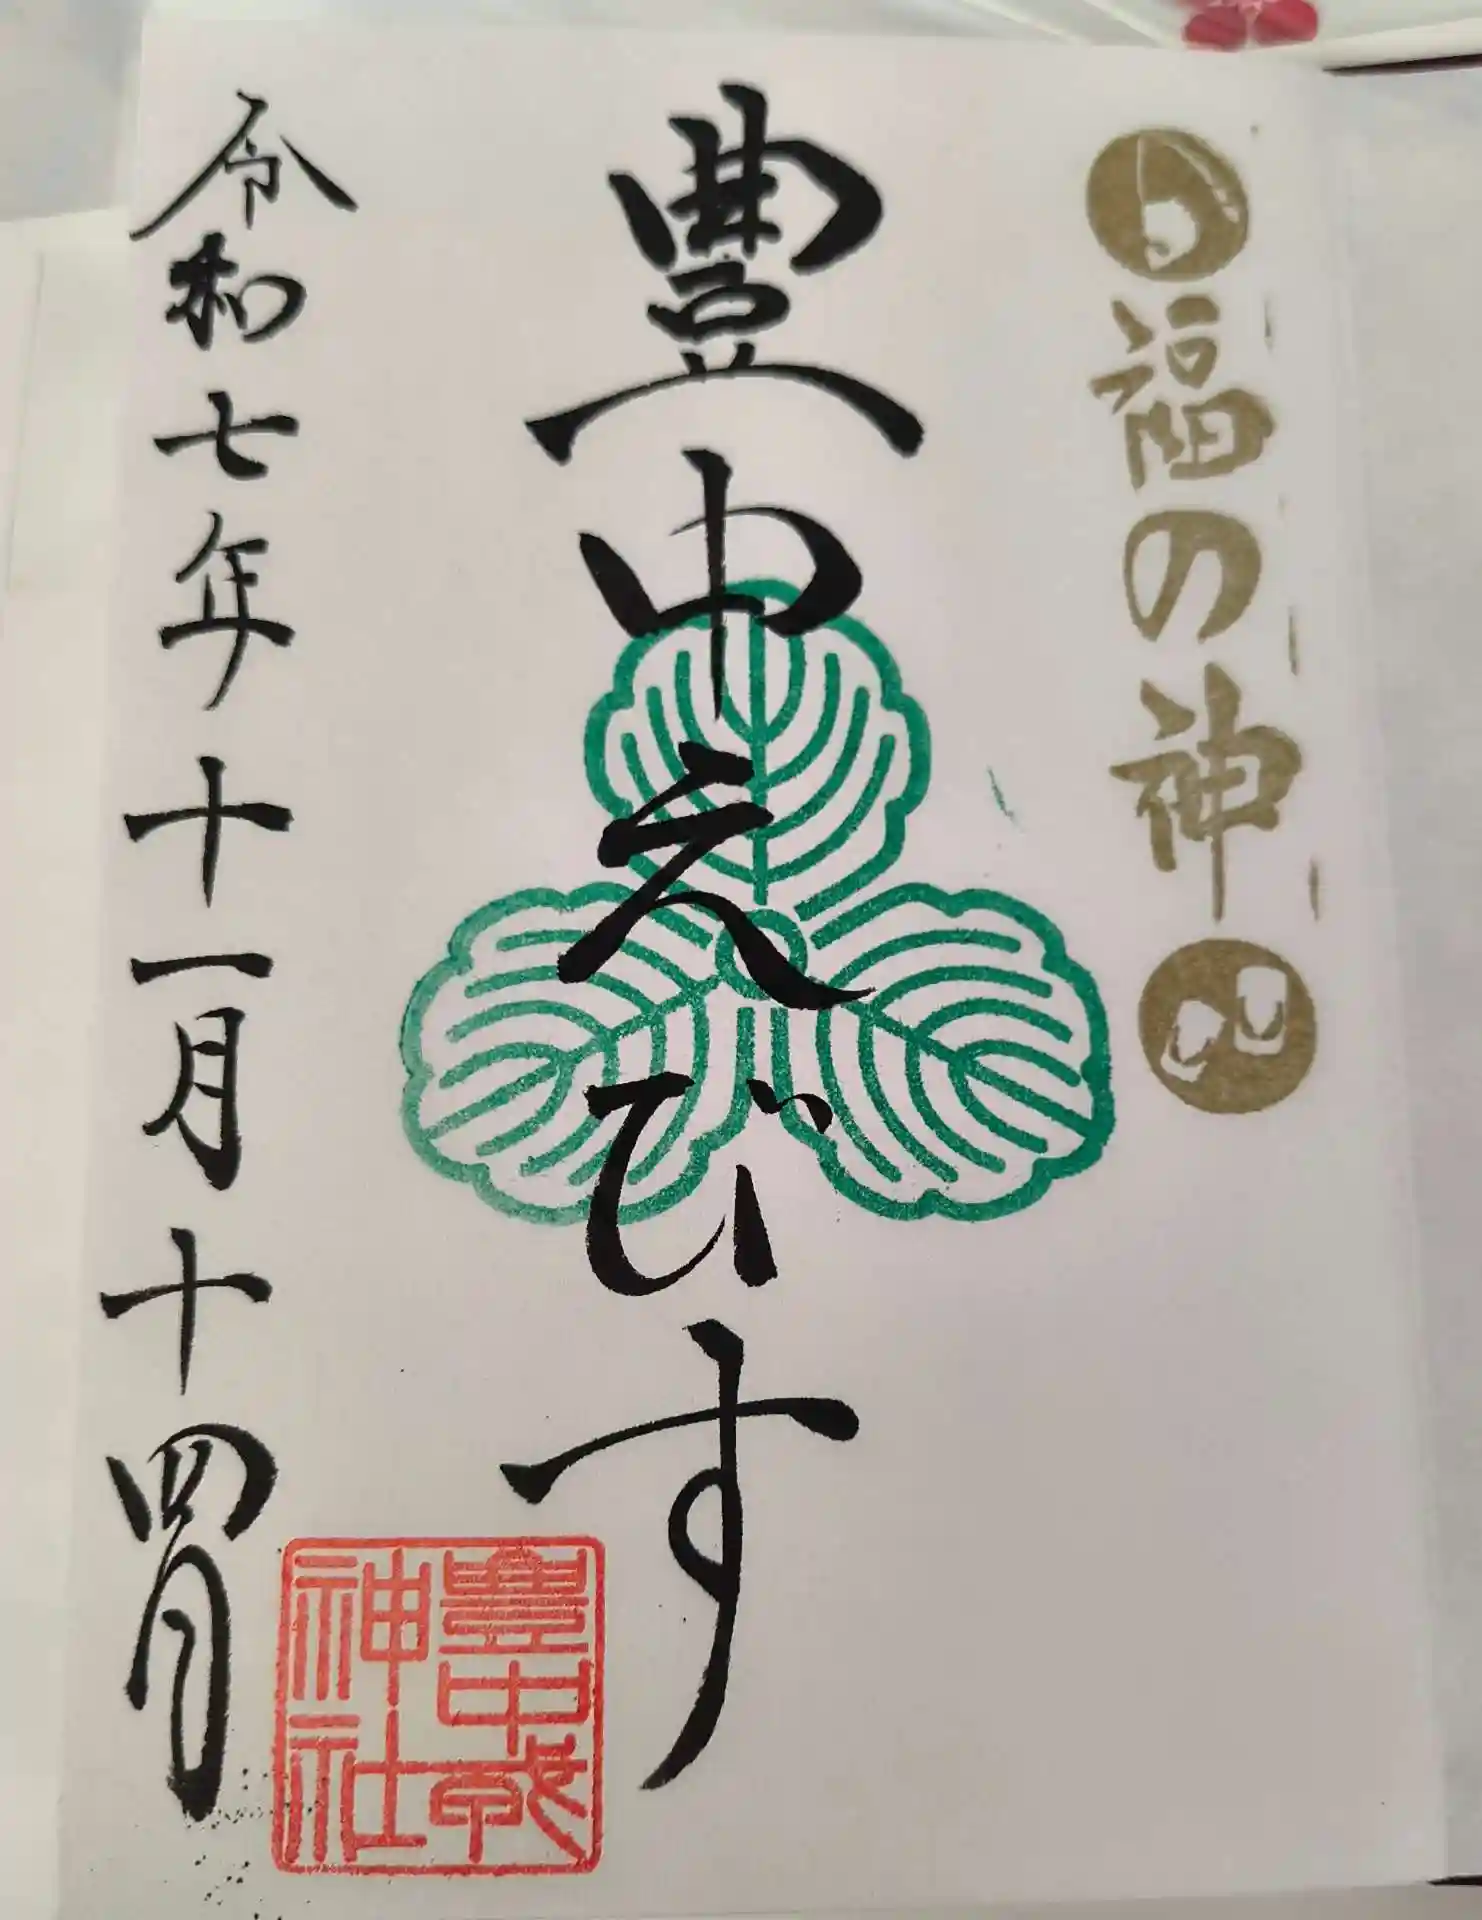 福の神
豊中えびす
豊中戎
神社
令和七年十一月十四日